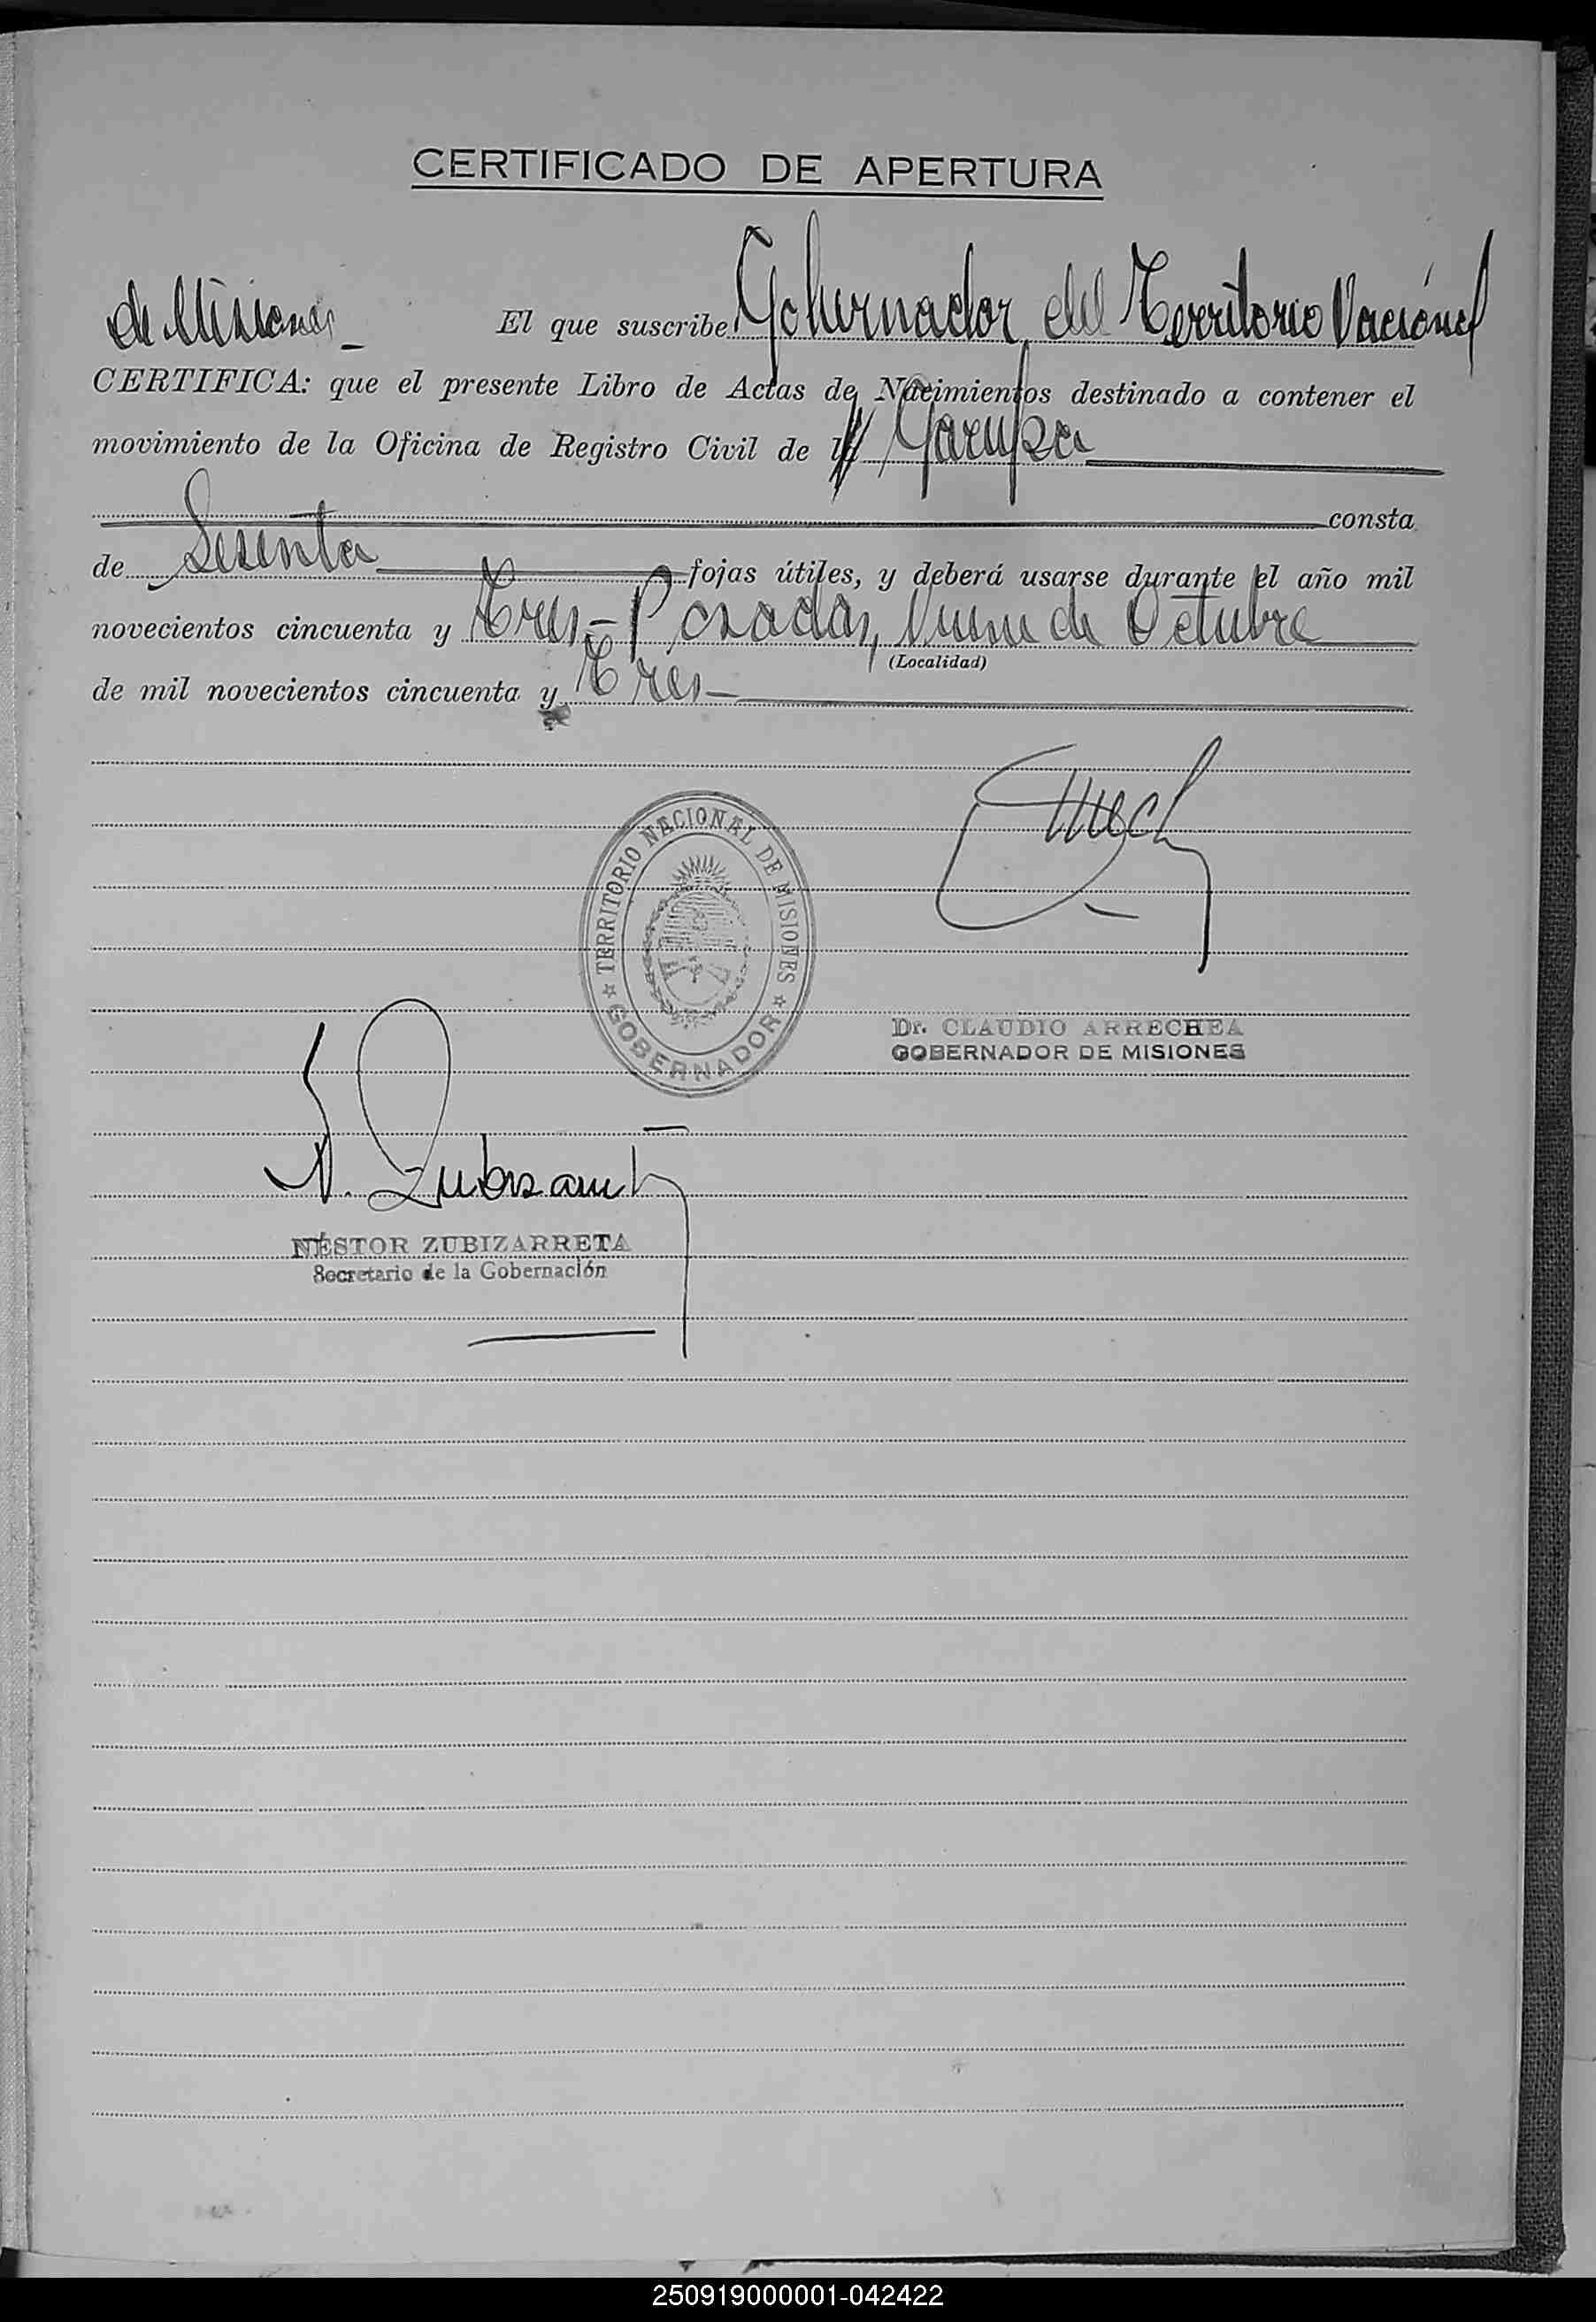 CERTIFICADO DE APERTURA
El que suscribe Gobernador del Territorio Nacional
de Misiones_
CERTIFICA: que el presente Libro de Actas de Nacimientos destinado a contener el
movimiento de la Oficina de Registro Civil de Garupá
consta
de Sesenta fojas útiles, y deberá usarse durante el año mil
novecientos cincuenta y Tres - Posadas, Nueve de Octubre
(Localidad)
de mil novecientos cincuenta y Tres
TERRITORIO NACIONAL DE MISIONES
GOBERNADOR
Dr. CLAUDIO ARRECHEA
GOBERNADOR DE MISIONES
N. Zubizarreta
NÉSTOR ZUBIZARRETA
Secretario de la Gobernación
250919000001-042422